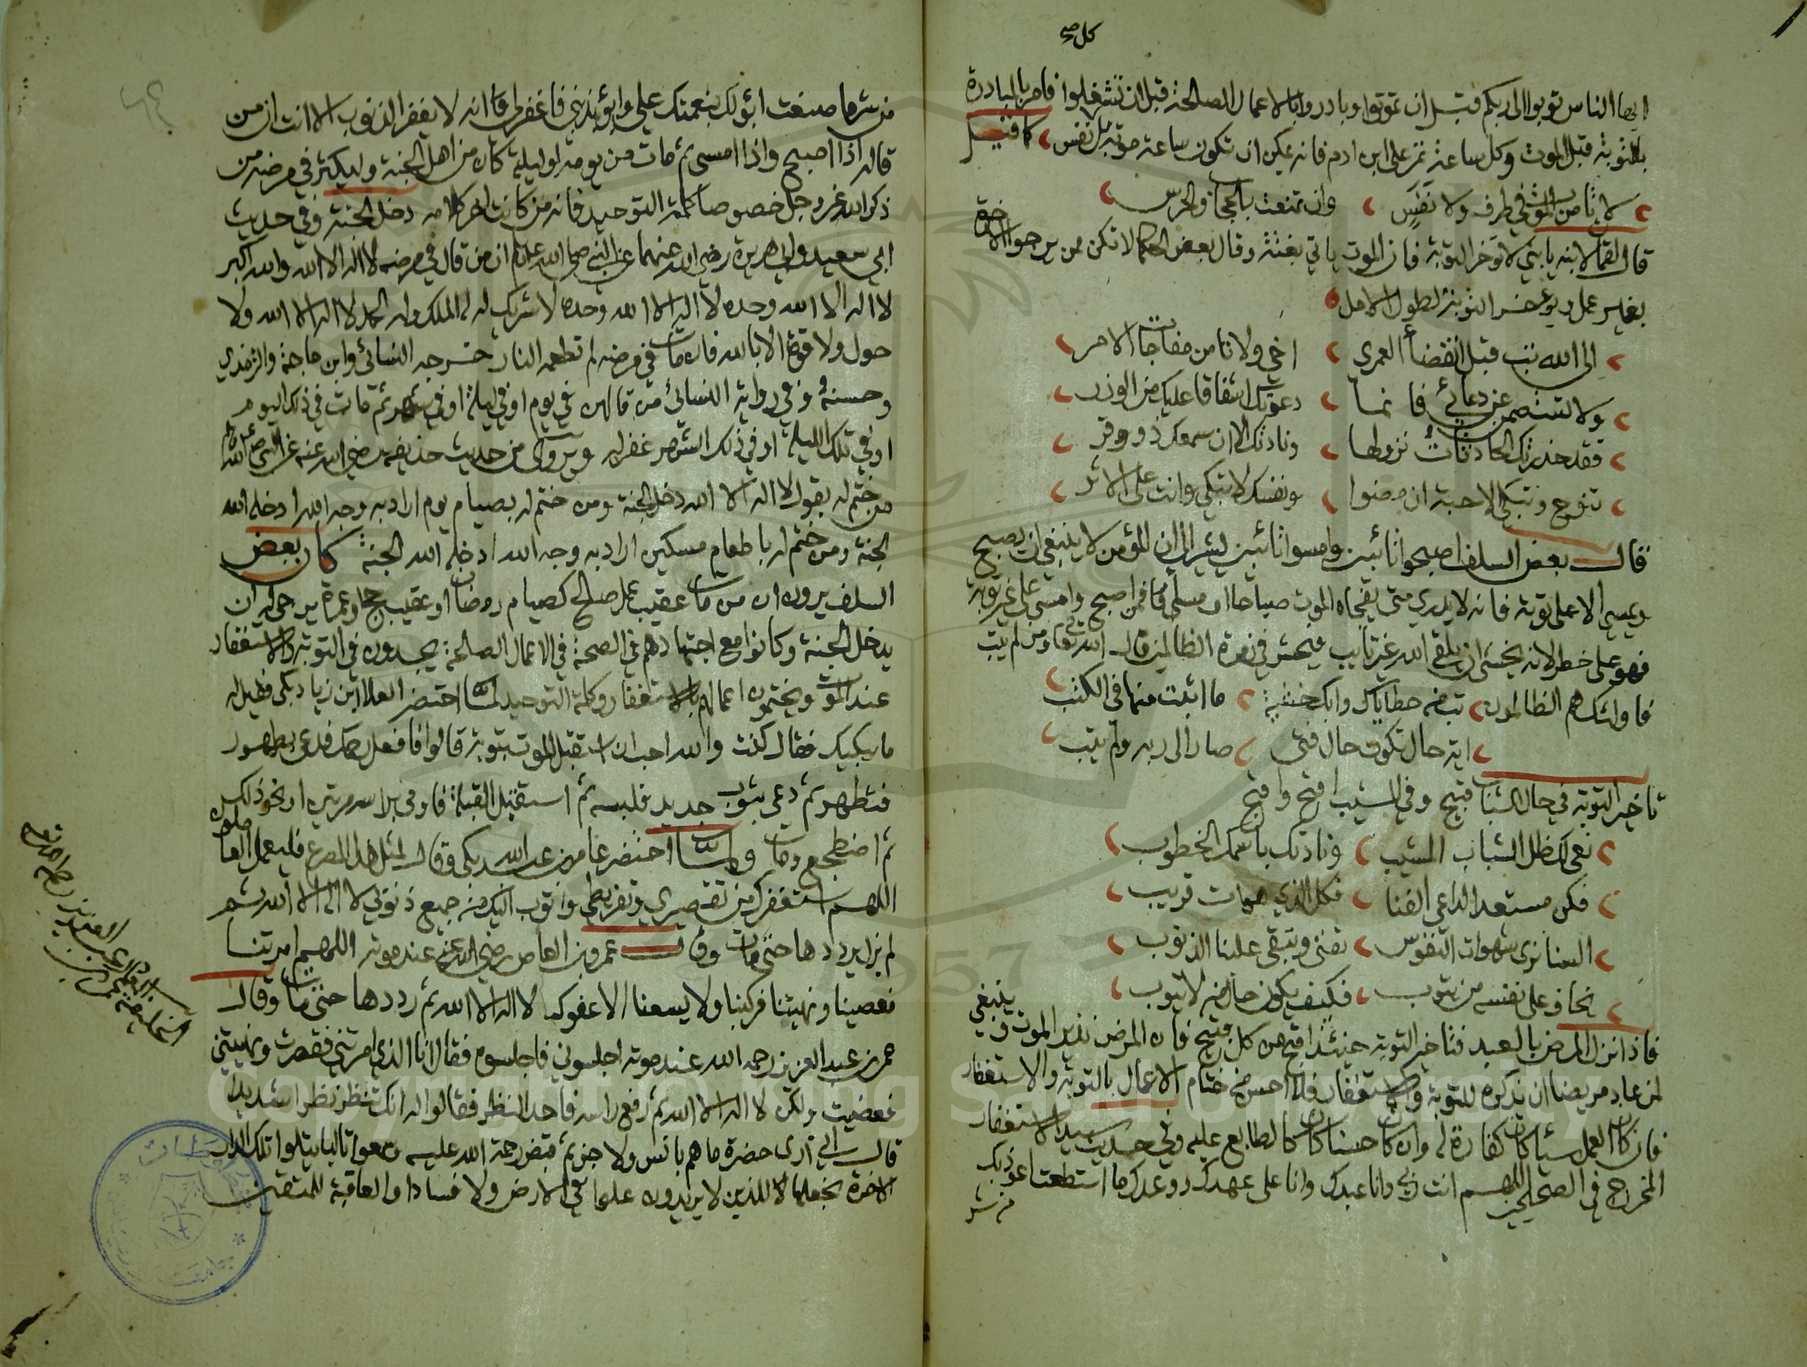 ايها الناس توبوا الى ربكم قبل ان تموتوا وبادروا بالاعمال الصالحة قبل ان تشغلوا فامر بالمبادرة
بالتوبة قبل الموت وكل ساعة تمر على ابن ادم فانه يمكن ان تكون ساعة موته بل نفس كما قيل
لا تامن الموت في طرف ولا نفس وان تمنعت بالحجاب والحرس
قال لقمان لابنه يا بني لا تؤخر التوبة فان الموت ياتي بغتة وقال بعض الحكما لا تكن ممن يرجو الاخرة
بغير عمل ويؤخر التوبة لطول الامل
الى الله تب قبل انقضا العمري اخي ولا تامن مفاجات الامر
ولا تستصمن عن دعائي فانما دعوتك اشفاقا عليك من الوزر
فقد حذرتك الحادثات نزولها ونادتك الا ان سمعك ذو وقر
تنوح وتبكي الاحبة ان مضوا ونفسك لا تبكي وانت على الاثر
قال بعض السلف اصبحوا تائبين وامسوا تائبين يشير الى ان المؤمن لا ينبغي ان يصبح
ويمسي الا على توبة فانه لا يدري متى يفجاه الموت صباحا او مساء فمن اصبح وامسى على غير توبة
فهو على خطر لانه يخشى ان يلقى الله غير تايب فيحشر في زمرة الظالمين قال الله تعا ومن لم يتب
فاولئك هم الظالمون خطاياك ما اثبت منها في الكتب
اية حال تكون حال فتى صار الى ربه ولم يتب
تاخير التوبة في حال الشباب قبيح وفي المشيب اقبح واقبح
نعى لك ظل الشباب المشيب ونادتك باسمك الخطوب
فكن مستعدا لداعي الفنا فكل الذي هوات قريب
السنا نرى شهوات النفوس تفنى وتبقى علينا الذنوب
يخاف على نفسه من يتوب فكيف يكون حال من لا يتوب
فاذا نزل المرض بالعبد فتاخير التوبة حينئذ اقبح من كل قبيح فان المرض نذير الموت وينبغي
لمن عاد مريضا ان يذكره التوبة والاستغفار فلا احسن من ختام الاعمال بالتوبة والاستغفار
فان كان العمل سيا كان كفارة له وان كان حسنا كان كالطابع عليه وفي حديث سيد الاستغفار
المخرج في الصحيح اللهم انت ربي وانا عبدك وانا على عهدك ووعدك ما استطعت اعوذ بك
من شر
من شر ما صنعت ابوء لك بنعمتك علي وابوء بذنبي فاغفر لي فانه لا يغفر الذنوب الا انت ان من
قاله اذا اصبح واذا امسى ثم مات من يومه او ليلته كان من اهل الجنة وليكثر في مرضه من
ذكر الله عز وجل خصوصا كلمة التوحيد فانه من كانت اخر كلامه دخل الجنة وفي حديث
ابي سعيد وابي هريرة رضي الله عنهما عن النبي صلى الله عليه ان من قال في مرضه لا اله الا الله والله اكبر
لا اله الا الله وحده لا اله الا الله وحده لا شريك له له الملك وله الحمد لا اله الا الله ولا
حول ولا قوة الا بالله فان مات في مرضه لم تطعمه النار خرجه النسائي وابن ماجة والترمذي
وحسنه وفي رواية النسائي من قالهن في يوم او في ليلة او في شهر ثم مات في ذلك اليوم
او في تلك الليلة او في ذلك الشهر غفر له ويروى من حديث حذيفة رضي الله عنه عن النبي
من ختم له بقول لا اله الا الله دخل الجنة ومن ختم له بصيام يوم اراد به وجه الله ادخله الله
الجنة ومن ختم له باطعام مسكين اراد به وجه الله ادخله الله الجنة كان بعض
السلف يرون ان من مات عقيب عمل صالح كصيام رمضان او عقيب حج او عمرة يرجى له ان
يدخل الجنة وكانوا مع اجتهادهم في الصحة في الاعمال الصالحة يجددون التوبة والاستغفار
عند الموت ويختمون اعمالهم بالاستغفار وكلمة التوحيد لما احتضر العلا ابن زياد بكى فقيل له
ما يبكيك فقال كنت والله احب ان استقبل الموت بتوبة قالوا فافعل رحمك الله فدعى بطهور
فتطهر ثم دعى بثوب جديد فلبسه ثم استقبل القبلة فاومى براسه مرتين او نحو ذلك
ثم اضطجع ومات ولما احتضر عامر بن عبد الله بكى وقال لمثل هذا المصرع فليعمل العاملون
اللهم استغفرك من تقصيري وتفريطي واتوب اليك من جميع ذنوبي لا اله الا الله ثم
لم يزل يرددها حتى مات وقال عمرو بن العاص رضي الله عنه عند موته اللهم امرتنا
فعصينا ونهيتنا فركبنا ولا يسعنا الا عفوك لا اله الا الله ثم رددها حتى مات وقال
عمر بن عبد العزيز رحمه الله عند موته اجلسوني فاجلسوه فقال انا الذي امرتني فقصرت ونهيتني
فعصيت ولكن لا اله الا الله ثم رفع راسه فاحد النظر فقالوا له انك تنظر نظرا شديدا
قال اني ارى حضرة ما هم بانس ولا جن ثم قبض رحمة الله عليه وسمعوا تاليا يتلوا تلك الدار
الاخرة نجعلها للذين لا يريدون علوا في الارض ولا فسادا والعاقبة للمتقين